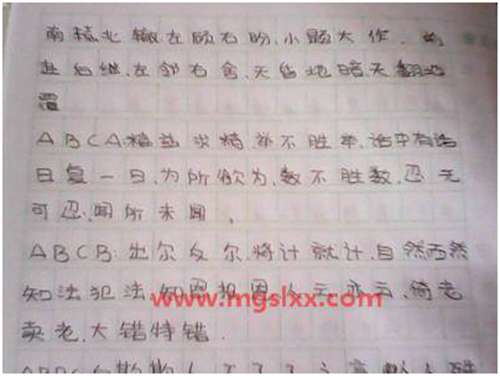 南辕北辙、左顾右盼、小题大作、前
赴后继、左邻右舍、天昏地暗、天翻地
覆
ABCA:精益求精、举不胜举、话中有话
日复一日、为所欲为、数不胜数、忍无
可忍、闻所未闻、
ABCB:出尔反尔、将计就计、自然而然
知法犯法、知恩报恩、人云亦云、倚老
卖老、大错特错.
www.mgslxx.com